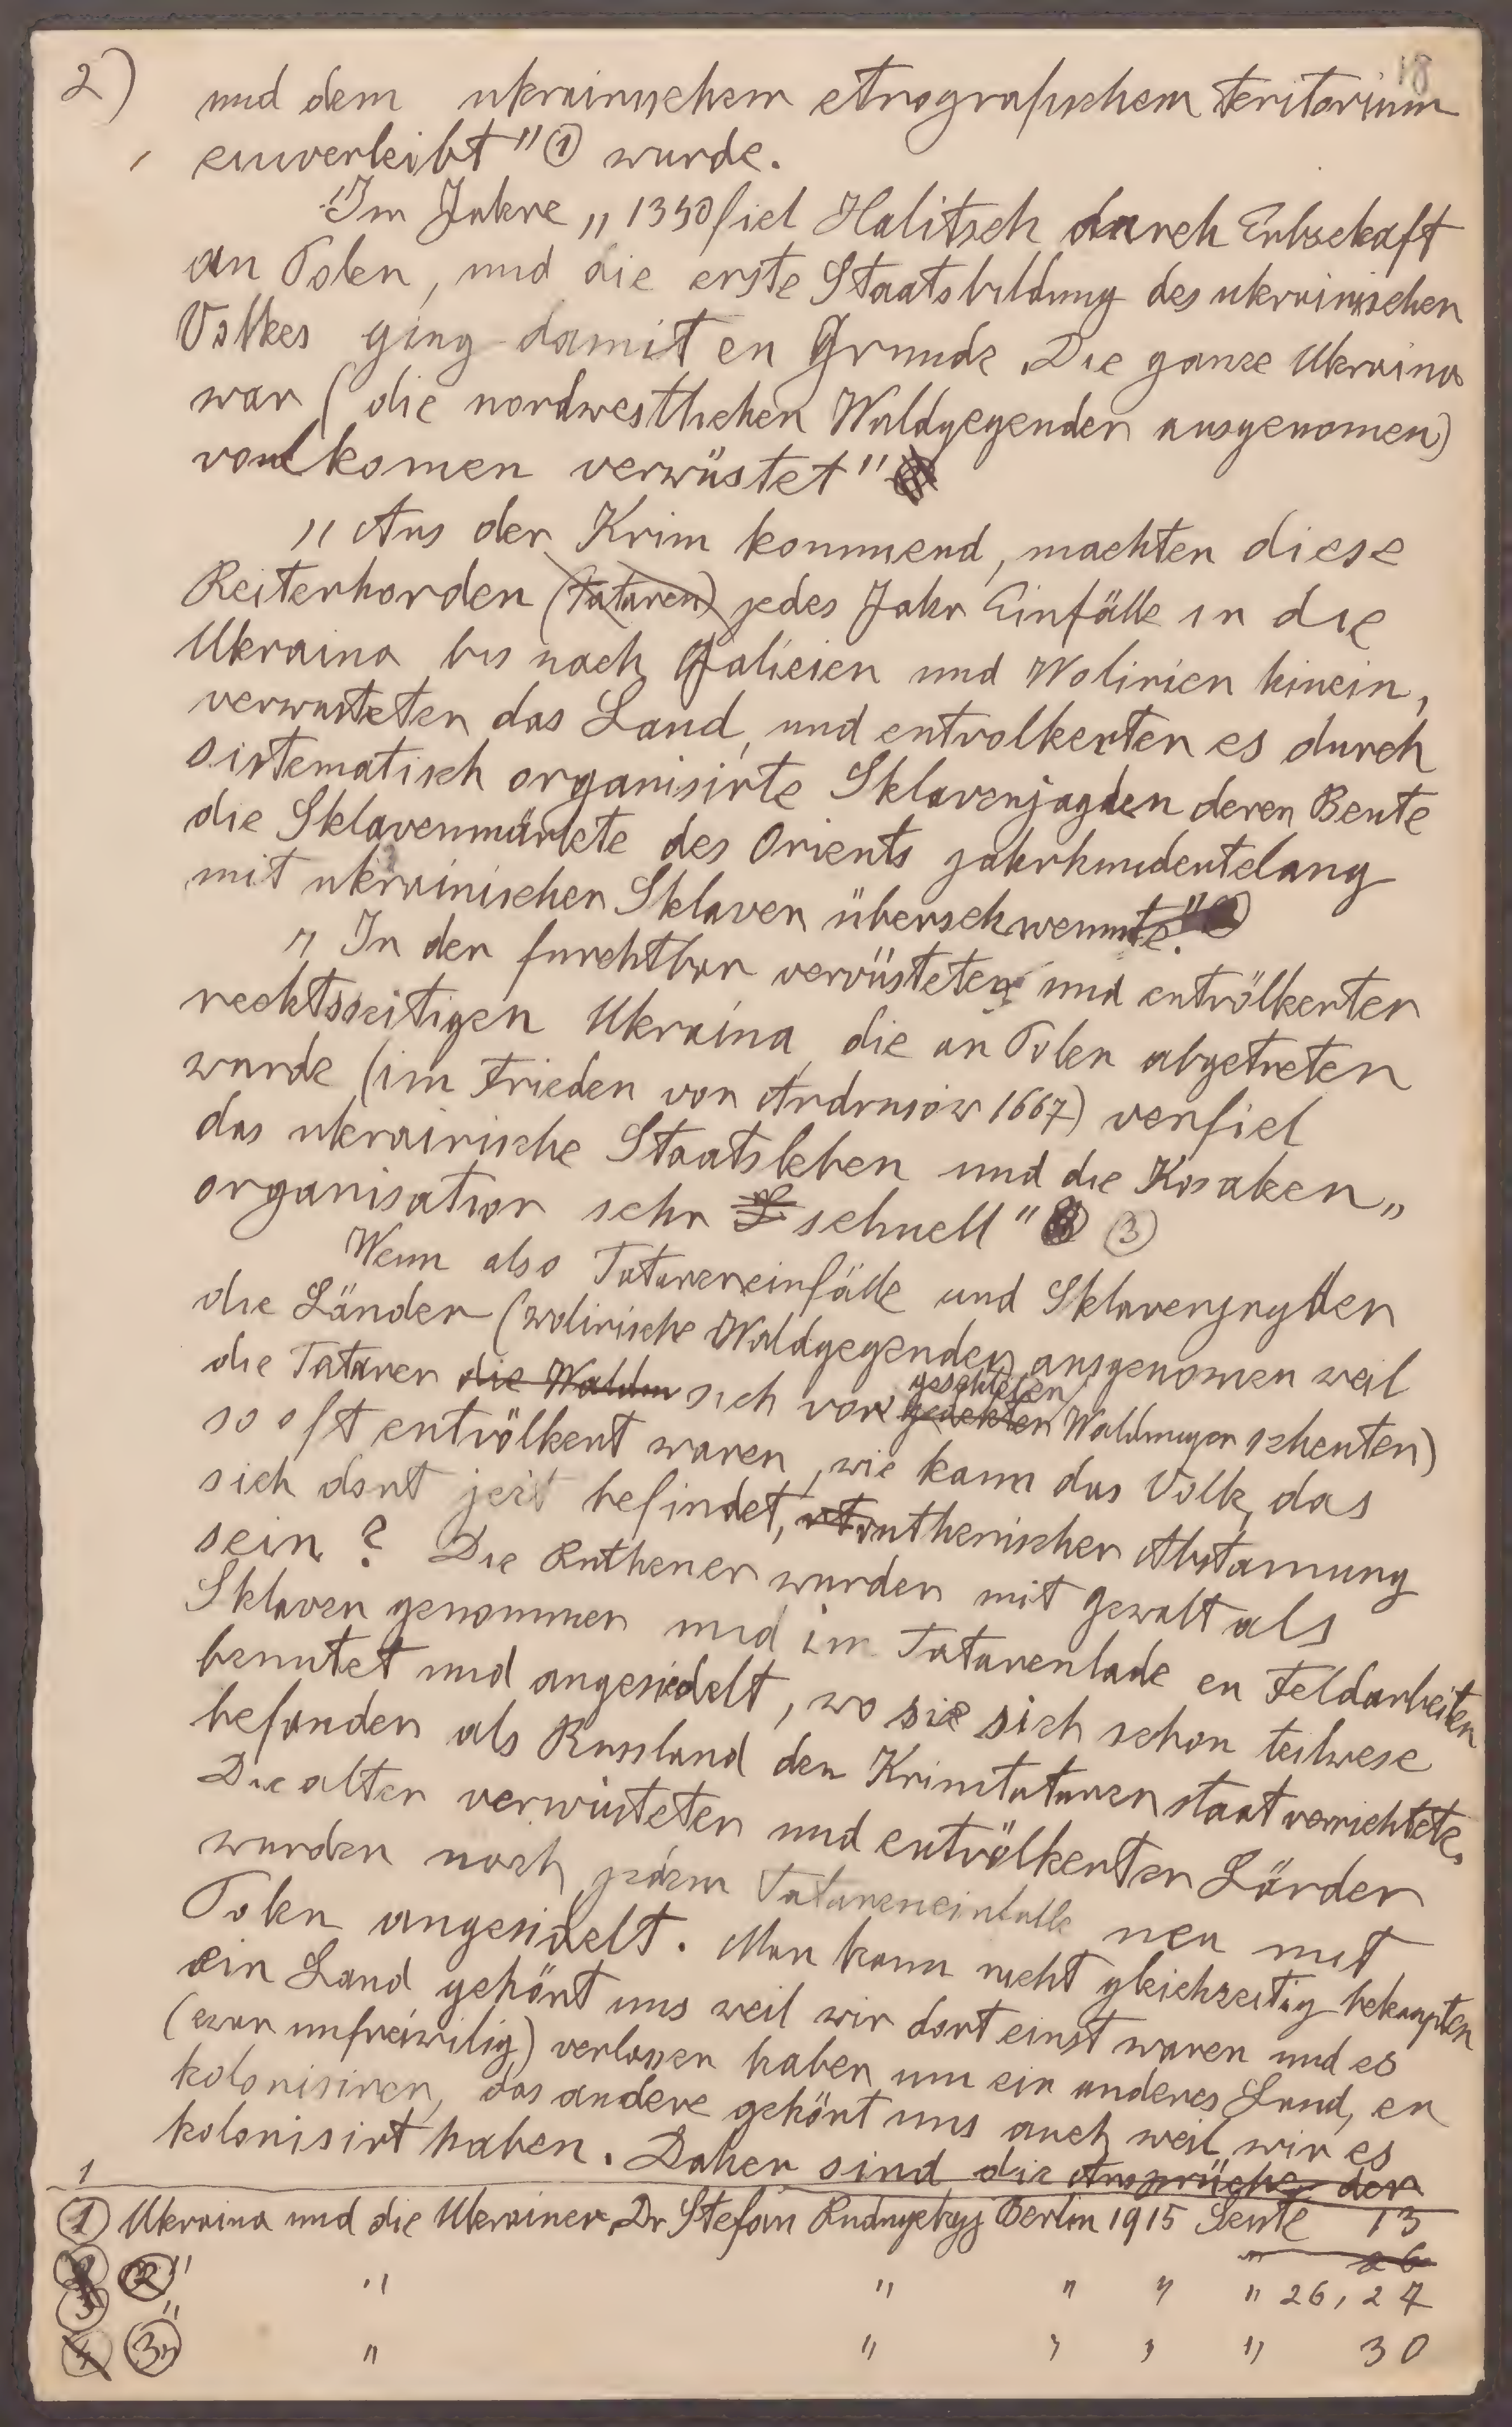 2) 18
und dem ukrainischem etnografischem teritorium
einverleibt" ① wurde.
Im Jahre „1350 fiel Halitsch durch Erbschaft
an Polen, und die erste Staatsbildung des ukrainischen
Volkes ging damit en Grunde. Die ganze Ukraina
war (die nordwestlichen Waldgegenden ausgenomen)
vollkomen verwüstet"
„Aus der Krim kommend, machten diese
Reiterhorden (Tataren) jedes Jahr Einfälle in die
Ukraina bis nach Galicien und Wolinien hinein,
verwusteten das Land, und entvolkerten es durch
sistematisch organisirte Sklavenjagden deren Beute
die Sklavenmärkte des Orients jahrhundertelang
mit ukrainischen Sklaven überschwemmte."
„In der furchtbar vervüsteten und entvölkerten
rechtsseitigen Ukraina, die an Polen abgetreten
wurde (im Frieden von Andrusow 1667) verfiel
das ukrainische Staatsleben und die Kosaken„
organisation sehr schnell" ③
Wenn also Tatareneinfälle und Sklavenjagden
die Länder (wolinische Waldgegenden ausgenomen weil
die Tataren die Walden sich vor geschlossen gedekten Waldungen scheuten)
so oft entvölkert waren, wie kann das Volk, das
sich dort jezt befindet, ruthenischer Abstamung
sein? Die Ruthener wurden mit gewalt als
Sklaven genommen und im Tatarenlade en Feldarbeiten
benutet und angesiedelt, wo sie sich schon teilwese
befanden als Russland den Krimtataren staat vernichtete.
Die alten verwüsteten und entvölkerten Länder
wurden nach jedem Tatareneinfalle neu mit
Polen angesidelt. Man kann nicht gleichzeitig behaupten
ein Land gehört uns weil wir dort einst waren und es
(ewar unfreiwilig) verlassen haben um ein anderes Land, en
kolonisiren, das andere gehört uns auch weil wir es
kolonisirt haben. Daher sind die Ansprüche der
① Ukraina und die Ukrainer, Dr Stefan Rudnyckyj Berlin 1915 Seite 13
" 26
② " " " " " " 26, 27
③ " " " " " 30